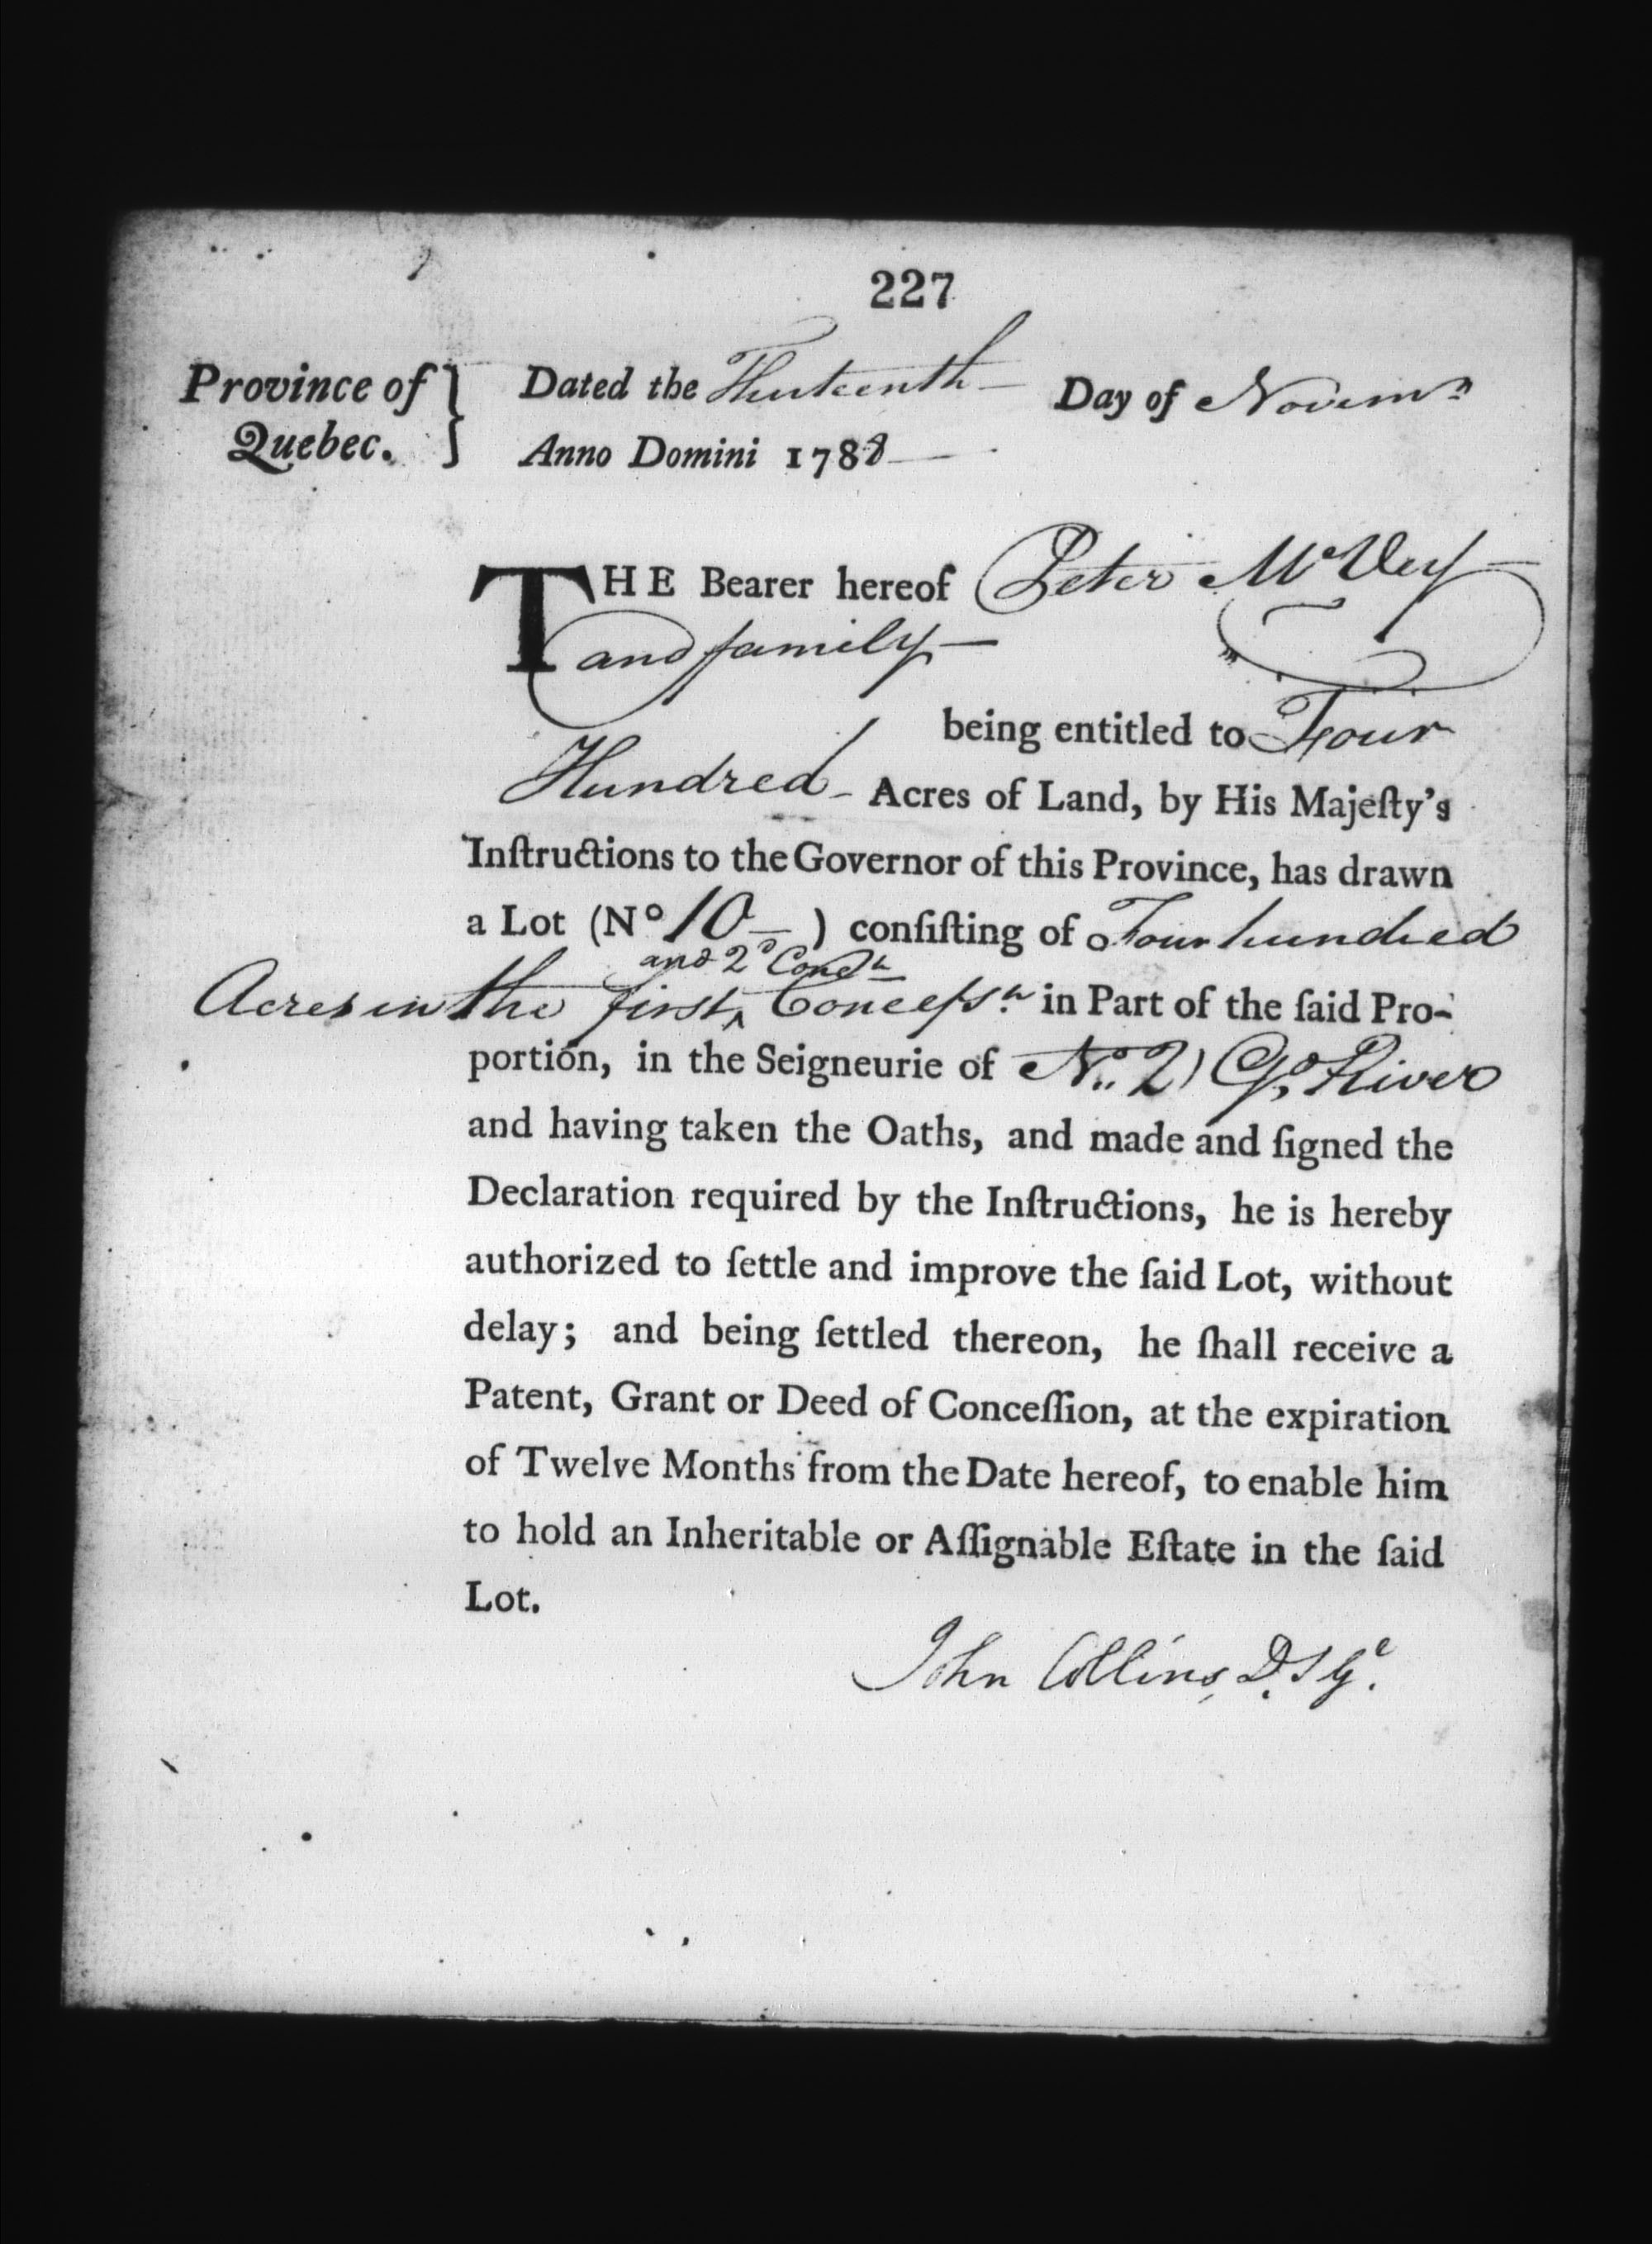 227
Province of } Dated the Thirteenth Day of Novemr
Quebec. } Anno Domini 1788
THE Bearer hereof Peter McVey
and family
being entitled to Four
Hundred Acres of Land, by His Majeſty's
Inſtructions to the Governor of this Province, has drawn
a Lot (No 10 ) conſiſting of Four hundred
and 2d
Acres in the first ^ Conceſsn in Part of the ſaid Pro-
portion, in the Seigneurie of No. 2) Gd. River
and having taken the Oaths, and made and ſigned the
Declaration required by the Inſtructions, he is hereby
authorized to ſettle and improve the ſaid Lot, without
delay; and being ſettled thereon, he ſhall receive a
Patent, Grant or Deed of Conceſſion, at the expiration
of Twelve Months from the Date hereof, to enable him
to hold an Inheritable or Aſſignable Eſtate in the ſaid
Lot.
John Collins, D.